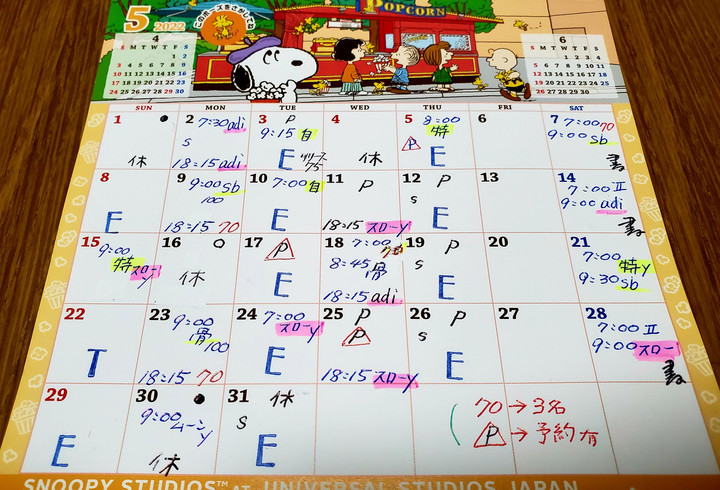 5 2022
このポーズをさがしてね
POPCORN
4
S M T W T F S
1 2
3 4 5 6 7 8 9
10 11 12 13 14 15 16
17 18 19 20 21 22 23
24 25 26 27 28 29 30
6
S M T W T F S
1 2 3 4
5 6 7 8 9 10 11
12 13 14 15 16 17 18
19 20 21 22 23 24 25
26 27 28 29 30
SUN MON TUE WED THU FRI SAT
1 ●
休
2 7:30 adi
s
18:15 adi
3 P
9:15 自
E
4
休
5 8:00
特
P
E
6
7 7:00 70
9:00 sb
8
E
9 9:00 sb
100
18:15 70
10 7:00 自
E
11 P
18:15 スローy
12 P
s
E
13
14 7:00 II
9:00 adi
15
9:00
特
スローy
16 ○
休
17 P
E
18 7:00
8:45 骨
18:15 adi
19 P
s
E
20
21
7:00
特y
9:30 sb
22
T
23 9:00
骨
100
18:15 70
24 7:00
スローy
E
25 P
P
18:15 スローy
26 P
s
E
27
28
7:00 II
9:00 スロー
29
E
30 ●
9:00
ムーン
y
休
31 休
s
E
70→3名
P→予約有
SNOOPY STUDIOS™ AT UNIVERSAL STUDIOS JAPAN